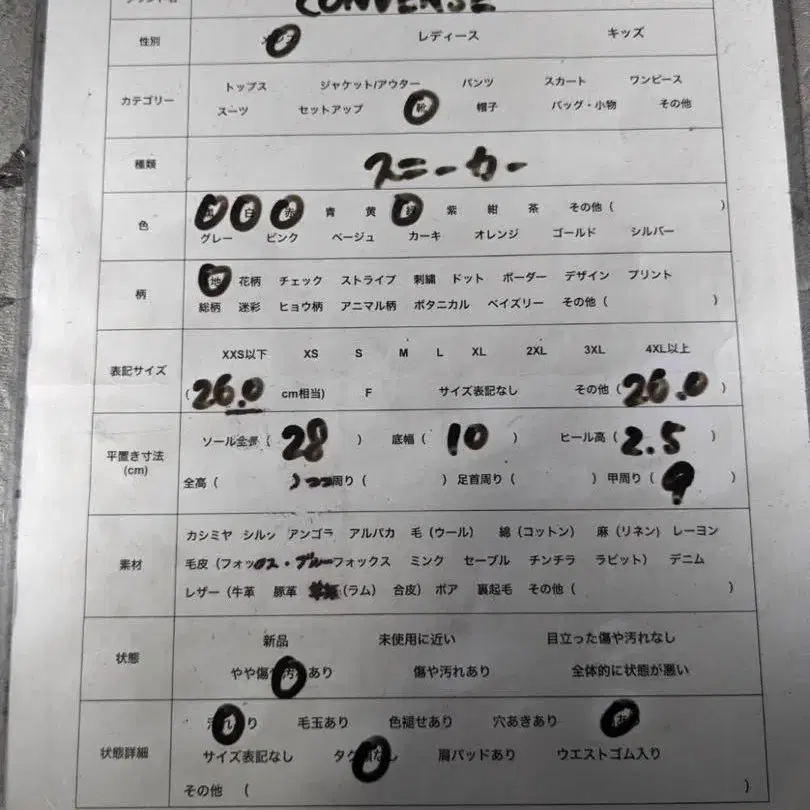 CONVENSE
性別 レディース キッズ
カテゴリー
トップス ジャケット/アウター パンツ スカート ワンピース
スーツ セットアップ 靴 帽子 バッグ・小物 その他
種類 スニーカー
色
白 赤 青 黄 紫 紺 茶 その他 ( )
グレー ピンク ベージュ カーキ オレンジ ゴールド シルバー
柄
地 花柄 チェック ストライプ 刺繍 ドット ボーダー デザイン プリント
総柄 迷彩 ヒョウ柄 アニマル柄 ボタニカル ペイズリー その他 ( )
表記サイズ
XXS以下 XS S M L XL 2XL 3XL 4XL以上
( 26.0 cm相当) F サイズ表記なし その他 ( 26.0 )
平置き寸法
(cm)
ソール全長 ( 28 ) 底幅 ( 10 ) ヒール高 ( 2.5 )
全高 ( ) 周り ( ) 足首周り ( ) 甲周り ( 9 )
素材
カシミヤ シルク アンゴラ アルパカ 毛 (ウール) 綿 (コットン) 麻 (リネン) レーヨン
毛皮 (フォックス・ブルーフォックス ミンク セーブル チンチラ ラビット) デニム
レザー (牛革 豚革 (ラム) 合皮) ボア 裏起毛 その他 ( )
状態
新品 未使用に近い 目立った傷や汚れなし
やや傷や汚れあり 傷や汚れあり 全体的に状態が悪い
状態詳細
汚れあり 毛玉あり 色褪せあり 穴あきあり
サイズ表記なし なし 肩パッドあり ウエストゴム入り
その他 ( )